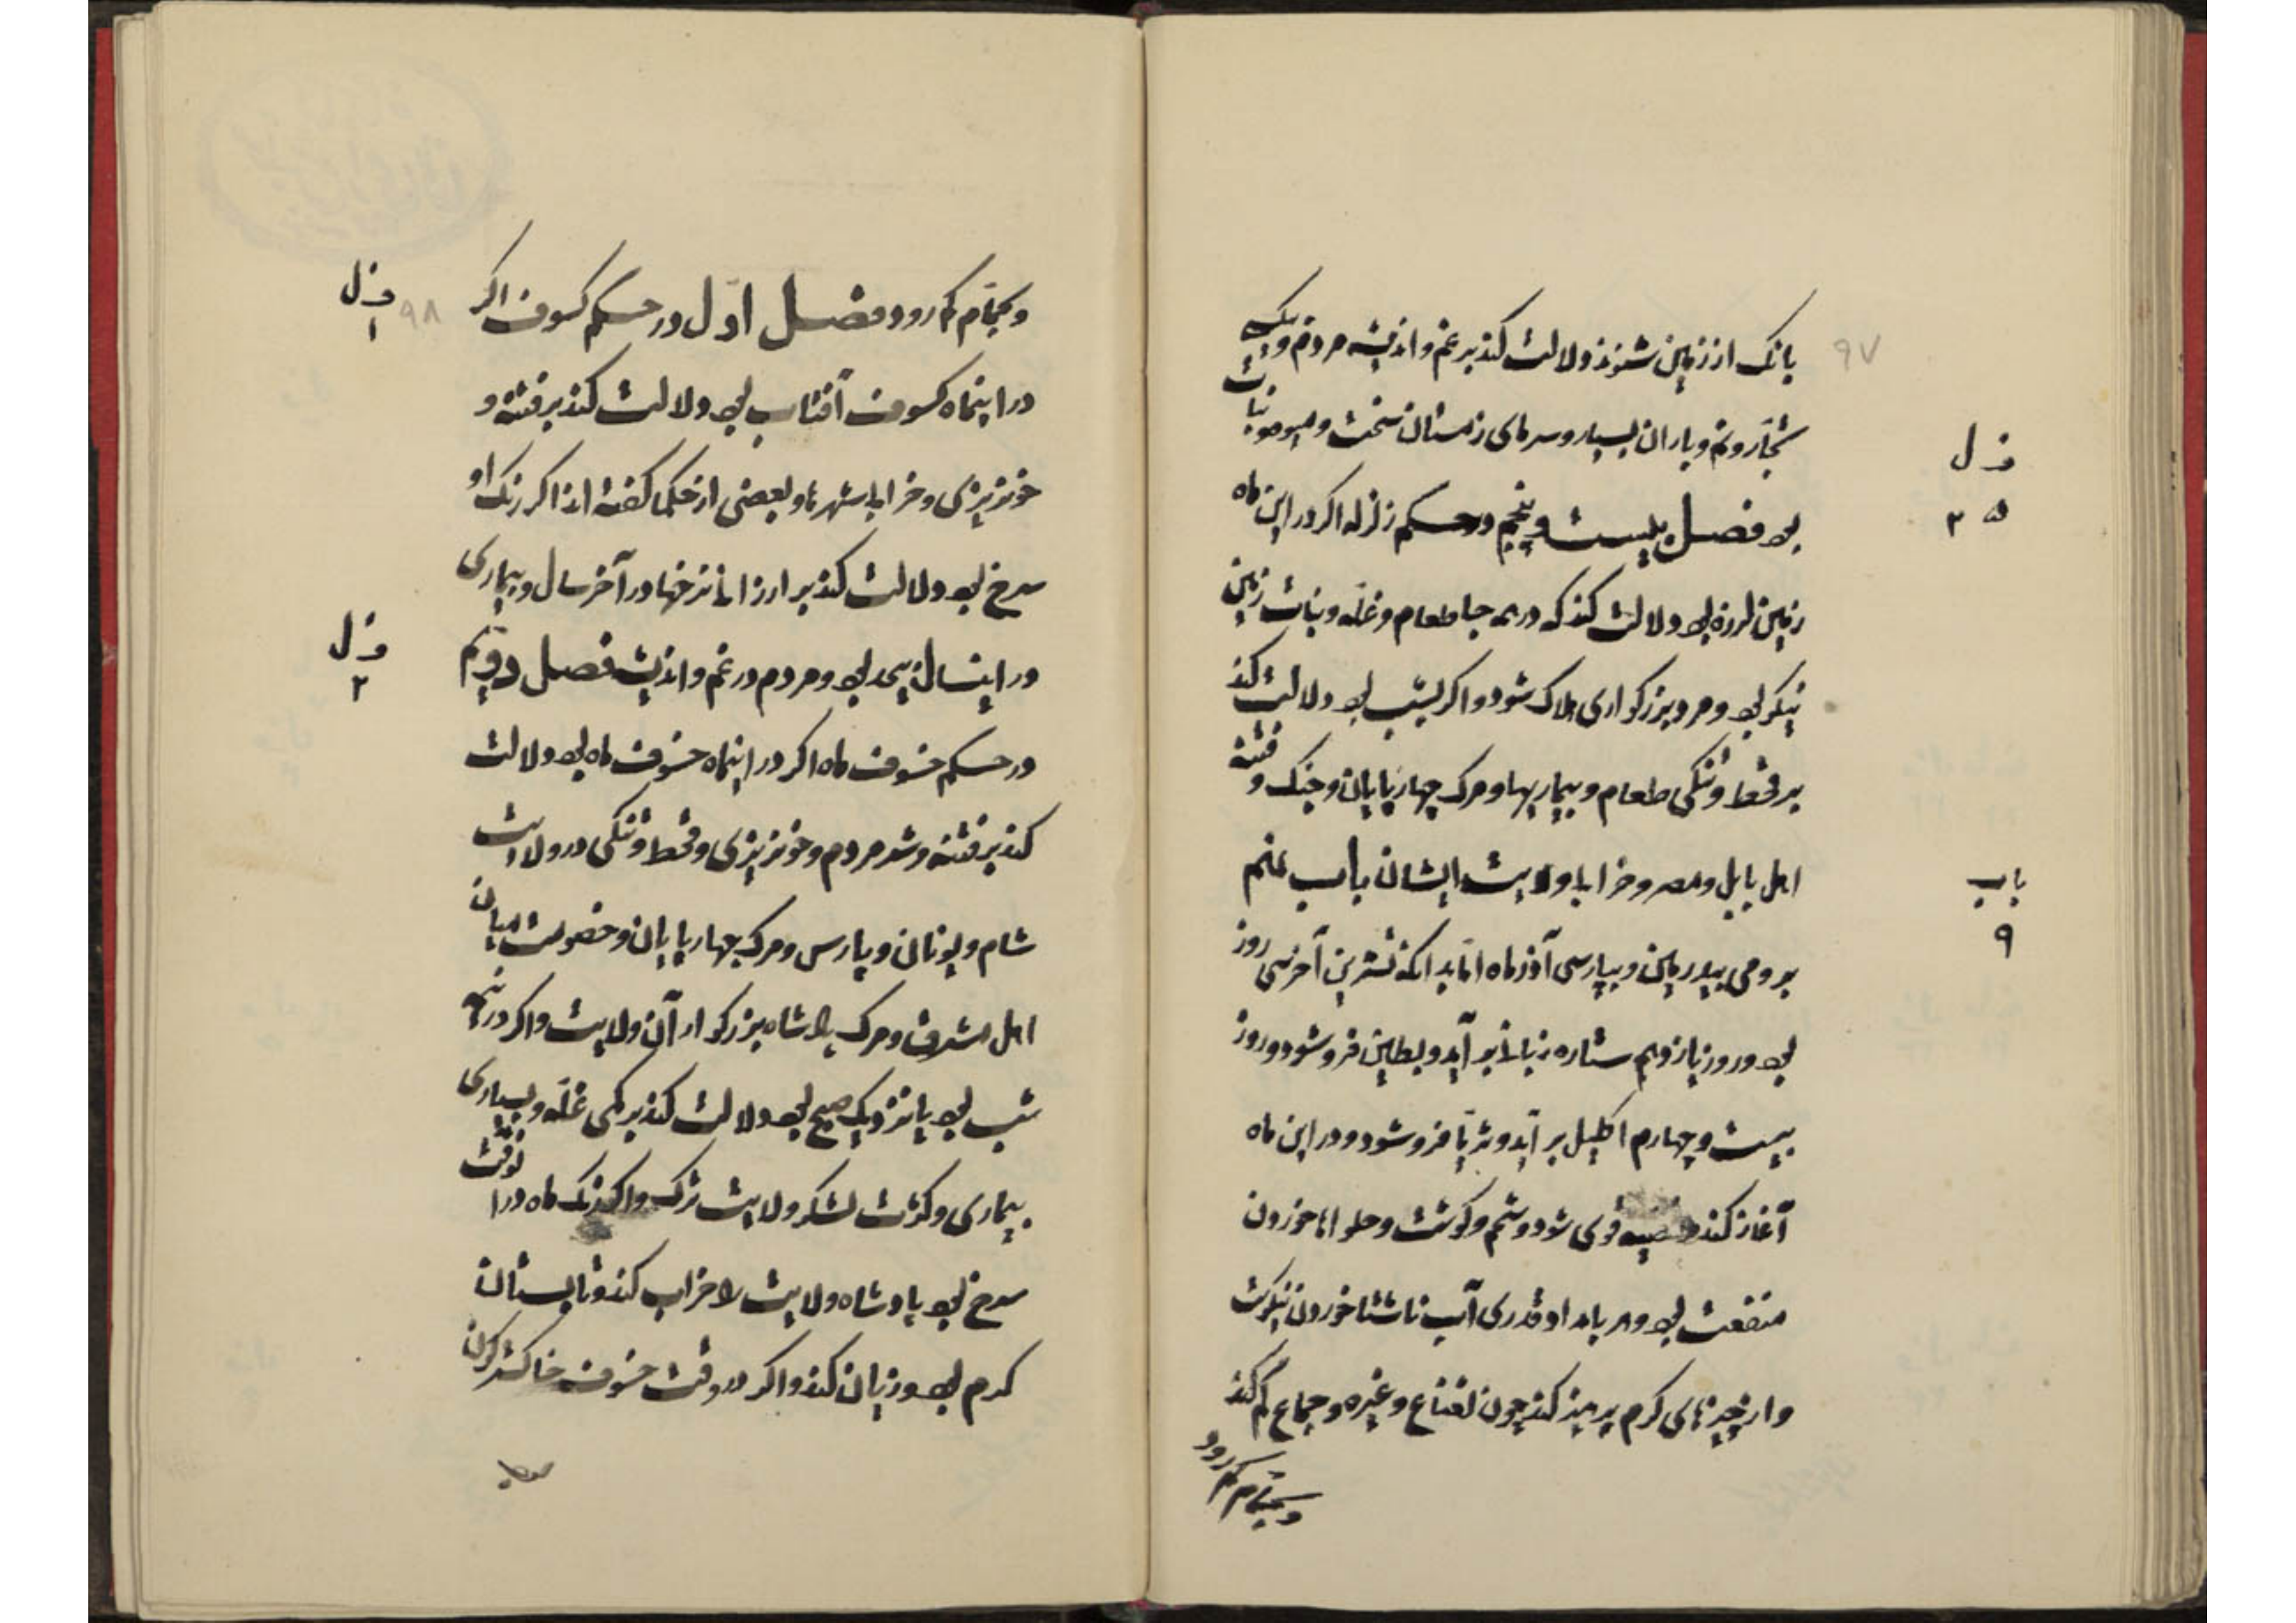 بانک از زمین شنوند دلالت کند بر غم و اندیشه مردم و یک
تجارو نم و باران بسیار و سرمای زمستان سخت و میوه و نبات
بود فصل بیست و پنجم در حکم زلزله اکر در این ماه
زمین لرزه بود دلالت کند که در همه جا طعام و غله و نبات زمین
نیکو بود و مرد بزرکواری هلاک شود و اکر بشب بود دلالت کند
بر قحط و تنکی طعام و بیماریها و مرک چهارپایان و جنک و فتنه
اهل بابل و مصر و خرابی ولایت ایشان باب نهم
برومی و بپارسی آذر ماه اما بدانکه تشرین آخر سی روز
بود و روز یازدهم ستاره زبانا بر آید و بطین فرو شود و روز
بیست و چهارم اکلیل بر آید و ثریا فرو شود و در این ماه
آغاز کند قوی شود و شحم و کوشت و حلواها خوردن
منفعت بود و هر بامداد قدری آب ناشتا خوردن نیکوست
و از چیزهای کرم پرهیز کند چون نعناع و غیره و جماع کم کند
و بحمام کم رود
۹۷
فصل
۲۵
باب
۹
و بحمام کم رود فصل اول در حکم کسوف اکر
در اینماه کسوف آفتاب بود دلالت کند بر فتنه و
خونریزی و خرابی شهرها و بعضی از حکما کفته اند اکر رنک او
سرخ بود دلالت کند بر ارزانی نرخها در آخر سال و بیماری
در اینسال بیحد بود و مردم در غم و اندیشه فصل دویم
در حکم خسوف ماه اکر در اینماه خسوف ماه بود دلالت
کند بر فتنه و شر مردم و خونریزی و قحط و تنکی در ولایت
شام و یونان و پارس و مرک چهارپایان و خصومت میان
اهل مشرق و مرک پادشاه بزرکوار آن ولایت و اکر در نیمه
شب بود یا نزدیک صبح بود دلالت کند بر کمی غله و بسیاری
بیماری و کثرت لشکر ولایت ترک و اکر رنک ماه در انوقت
سرخ بود پادشاه ولایت را خراب کند و تابستان
کرم بود و زیان کند و اکر در وقت خسوف خاکستر کون
بود
۹۸
فصل
۱
فصل
۲